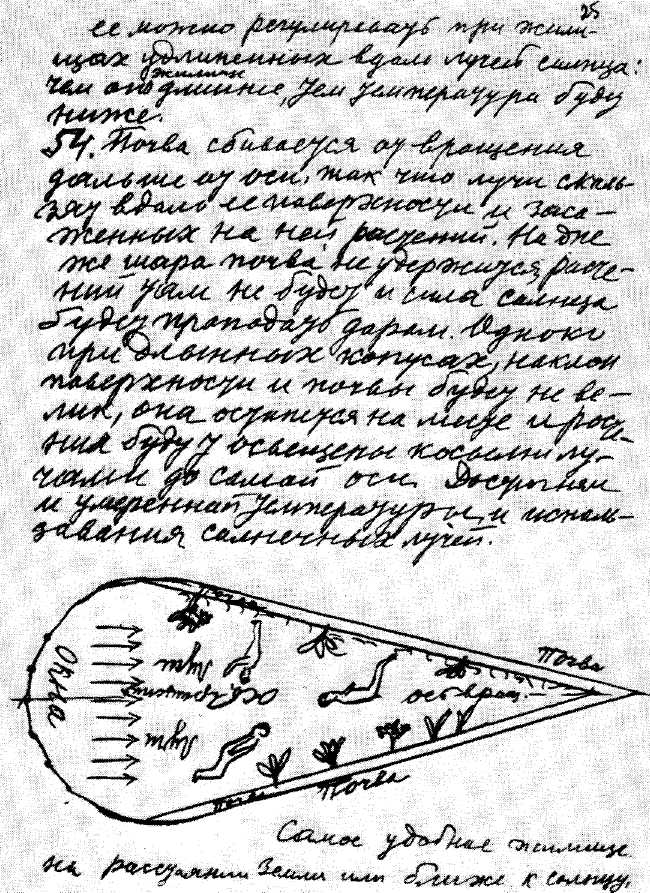 25
ее можно регулировать при жили-
щах удлиненных вдоль лучей солнца:
жилище
чем оно длиннее, тем температура будет
ниже.
54. Почва сбивается от вращения
дальше от оси, так что лучи сколь-
зят вдоль ее поверхности и заса-
женных на ней растений. На дне
же шара почва не удержится, расте-
ний там не будет и сила солнца
будет пропадать даром. Однако
при длинных конусах, наклон
поверхности и почвы будет не ве-
лик, она останется на месте и расте-
ния будут освещены косыми лу-
чами до самой оси. Достигнем
и умеренной температуры, и исполь-
зования солнечных лучей.
Окна
Почва
Лучи
Ось вращения
ось вращ.
Лучи
Почва
Почва
Почва
Самое удобное жилище
на расстоянии Земли или ближе к солнцу.